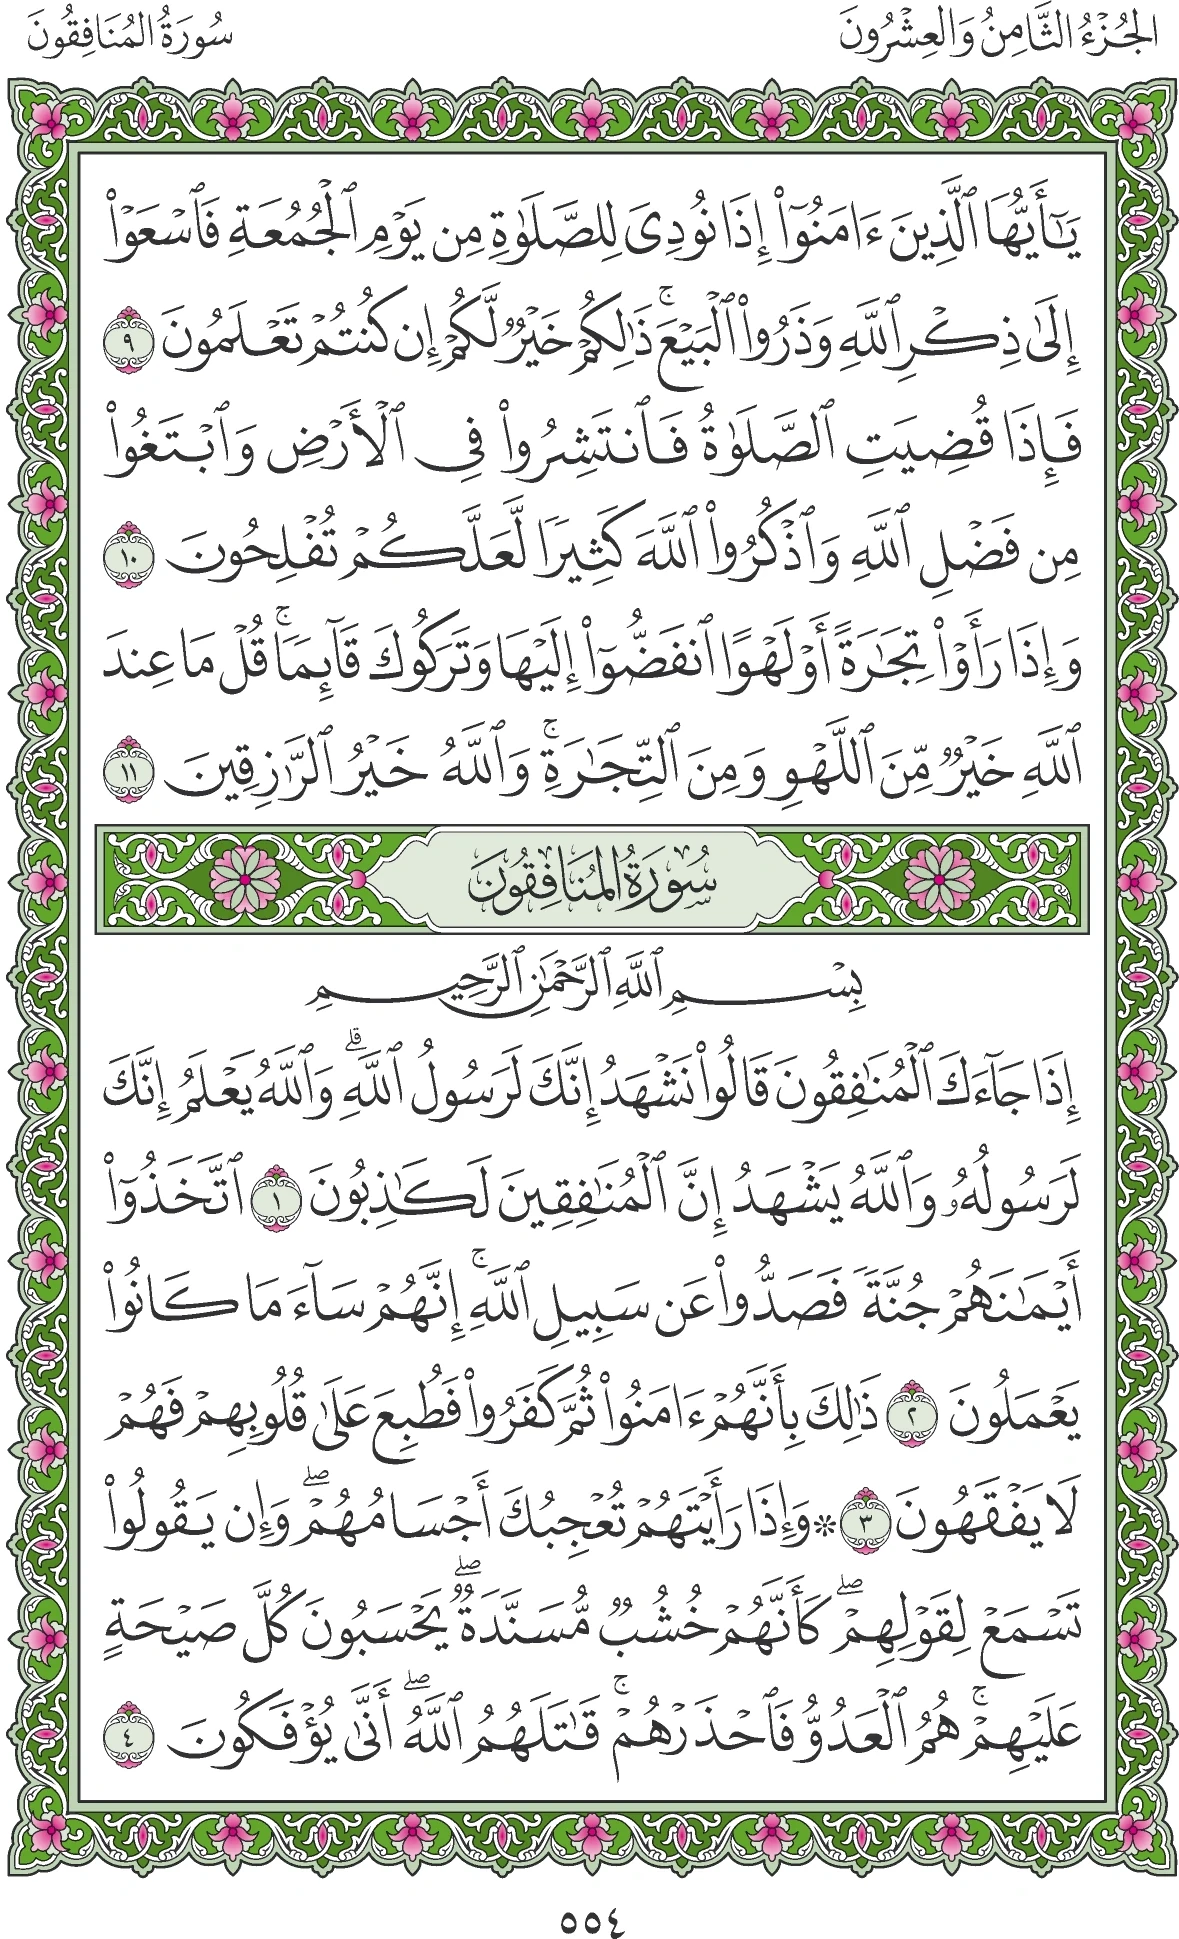 الجُزْءُ الثَّامِنُ وَالعِشْرُونَ
سُورَةُ المُنَافِقُونَ
يَٰٓأَيُّهَا ٱلَّذِينَ ءَامَنُوٓا۟ إِذَا نُودِىَ لِلصَّلَوٰةِ مِن يَوْمِ ٱلْجُمُعَةِ فَٱسْعَوْا۟
إِلَىٰ ذِكْرِ ٱللَّهِ وَذَرُوا۟ ٱلْبَيْعَ ۚ ذَٰلِكُمْ خَيْرٌ لَّكُمْ إِن كُنتُمْ تَعْلَمُونَ ٩
فَإِذَا قُضِيَتِ ٱلصَّلَوٰةُ فَٱنتَشِرُوا۟ فِى ٱلْأَرْضِ وَٱبْتَغُوا۟
مِن فَضْلِ ٱللَّهِ وَٱذْكُرُوا۟ ٱللَّهَ كَثِيرًا لَّعَلَّكُمْ تُفْلِحُونَ ١٠
وَإِذَا رَأَوْا۟ تِجَٰرَةً أَوْ لَهْوًا ٱنفَضُّوٓا۟ إِلَيْهَا وَتَرَكُوكَ قَآئِمًا ۚ قُلْ مَا عِندَ
ٱللَّهِ خَيْرٌ مِّنَ ٱللَّهْوِ وَمِنَ ٱلتِّجَٰرَةِ ۚ وَٱللَّهُ خَيْرُ ٱلرَّٰزِقِينَ ١١
سُورَةُ المُنَافِقُونَ
بِسْمِ ٱللَّهِ ٱلرَّحْمَٰنِ ٱلرَّحِيمِ
إِذَا جَآءَكَ ٱلْمُنَٰفِقُونَ قَالُوا۟ نَشْهَدُ إِنَّكَ لَرَسُولُ ٱللَّهِ ۗ وَٱللَّهُ يَعْلَمُ إِنَّكَ
لَرَسُولُهُۥ وَٱللَّهُ يَشْهَدُ إِنَّ ٱلْمُنَٰفِقِينَ لَكَٰذِبُونَ ١ ٱتَّخَذُوٓا۟
أَيْمَٰنَهُمْ جُنَّةً فَصَدُّوا۟ عَن سَبِيلِ ٱللَّهِ ۚ إِنَّهُمْ سَآءَ مَا كَانُوا۟
يَعْمَلُونَ ٢ ذَٰلِكَ بِأَنَّهُمْ ءَامَنُوا۟ ثُمَّ كَفَرُوا۟ فَطُبِعَ عَلَىٰ قُلُوبِهِمْ فَهُمْ
لَا يَفْقَهُونَ ٣ * وَإِذَا رَأَيْتَهُمْ تُعْجِبُكَ أَجْسَامُهُمْ ۖ وَإِن يَقُولُوا۟
تَسْمَعْ لِقَوْلِهِمْ ۖ كَأَنَّهُمْ خُشُبٌ مُّسَنَّدَةٌ ۖ يَحْسَبُونَ كُلَّ صَيْحَةٍ
عَلَيْهِمْ ۚ هُمُ ٱلْعَدُوُّ فَٱحْذَرْهُمْ ۚ قَٰتَلَهُمُ ٱللَّهُ ۖ أَنَّىٰ يُؤْفَكُونَ ٤
٥٥٤